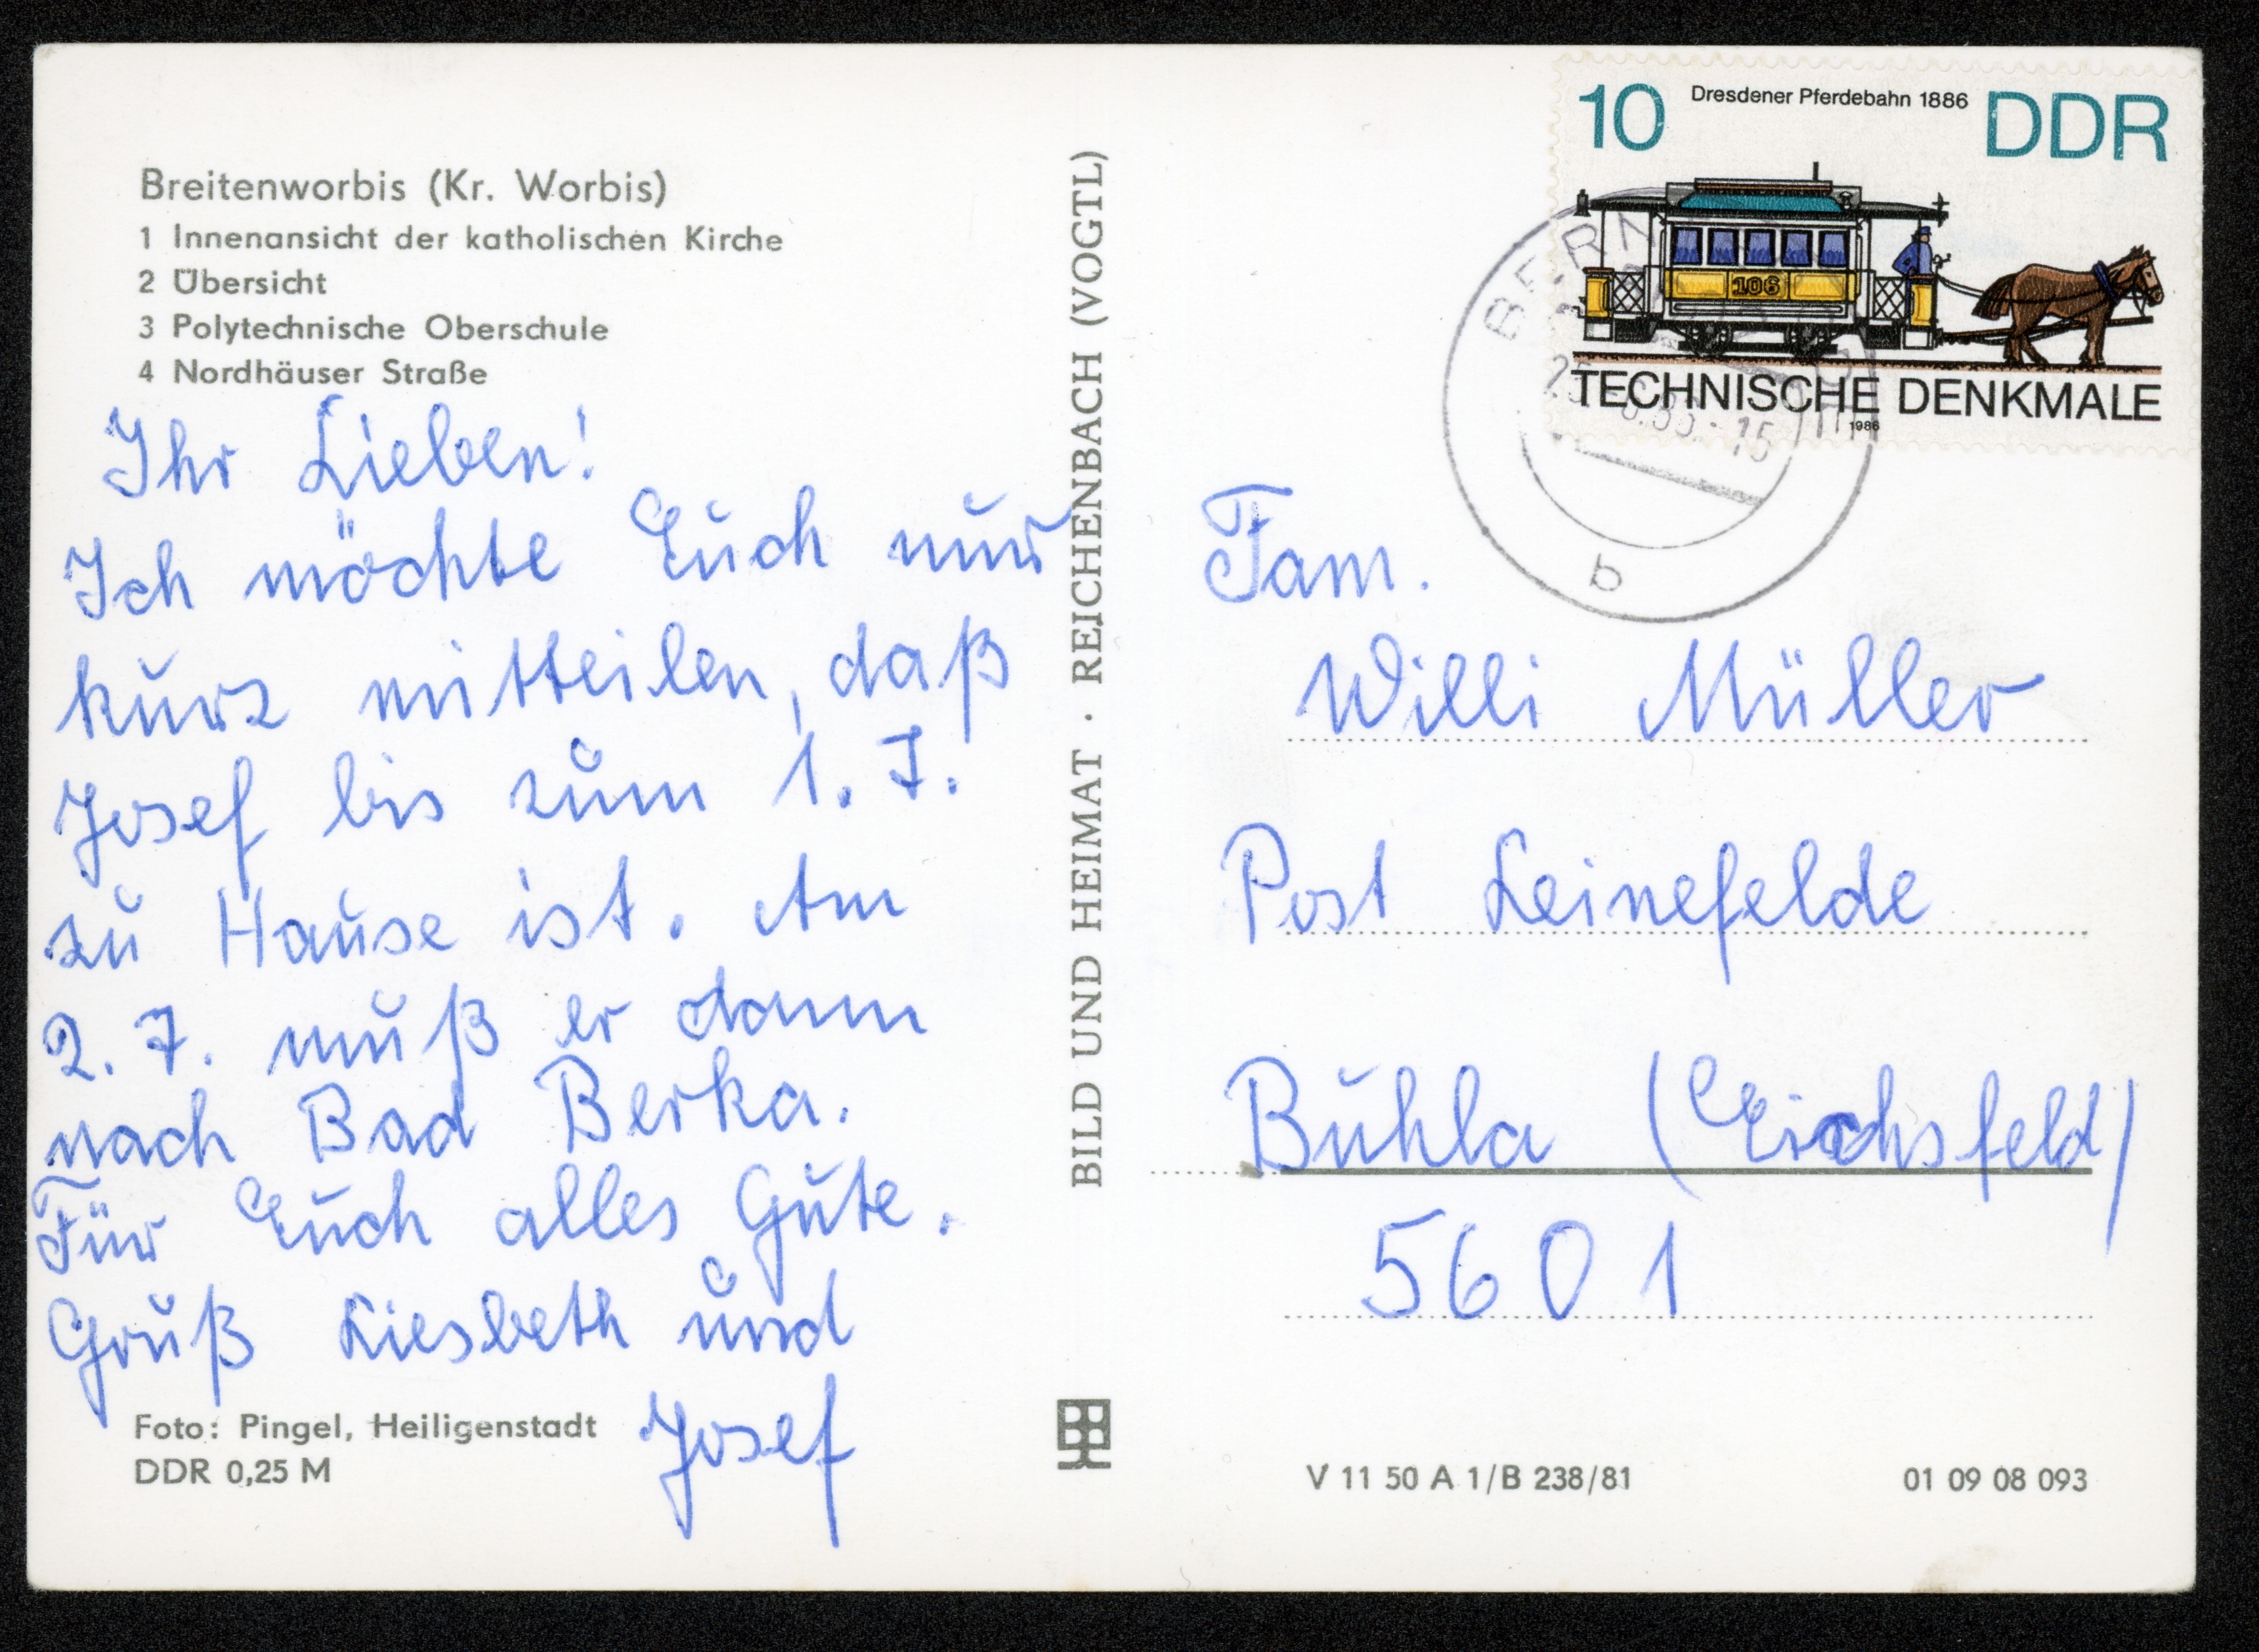 Breitenworbis (Kr. Worbis)
1 Innenansicht der katholischen Kirche
2 Übersicht
3 Polytechnische Oberschule
4 Nordhäuser Straße
Ihr Lieben!
Ich möchte Euch nur
kurz mitteilen, daß
Josef bis zum 1. 7.
zu Hause ist. Am
2. 7. muß er dann
nach Bad Berka.
Für Euch alles Gute.
Gruß Liesbeth und
Josef
Foto: Pingel, Heiligenstadt
DDR 0,25 M
BILD UND HEIMAT · REICHENBACH (VOGTL)
10 Dresdener Pferdebahn 1886 DDR
106
TECHNISCHE DENKMALE
1986
b
Fam.
Willi Müller
Post Leinefelde
Buhla (Eichsfeld)
5601
V 11 50 A 1/B 238/81 01 09 08 093